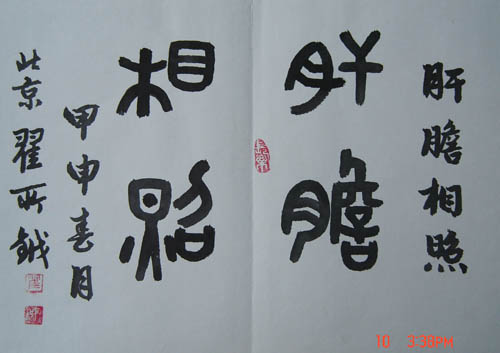 肝膽相照
肝膽
相照
甲申春月
北京翟所鉞
10 3:38PM